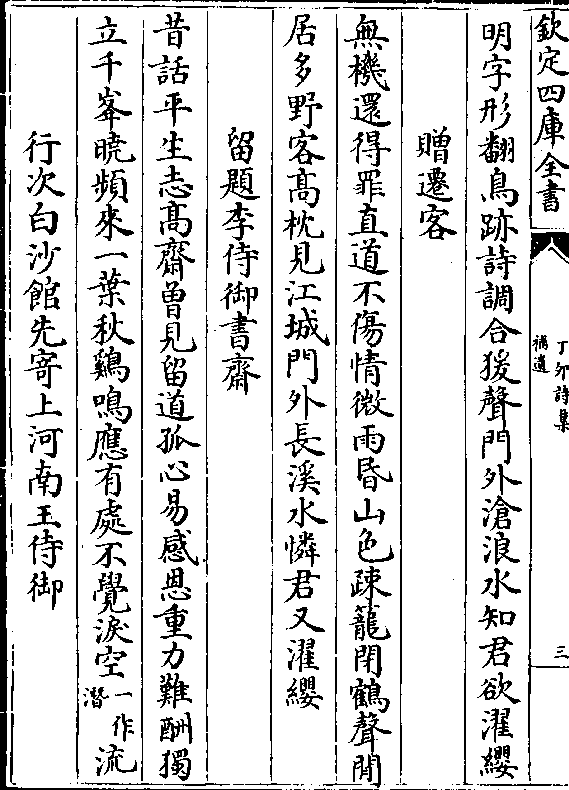 欽定四庫全書
丁卯詩集
補遺
三
明字形翻鳥跡詩調合猨聲門外滄浪水知君欲濯纓
贈遷客
無機還得罪直道不傷情微雨昏山色疎籠閉鶴聲閒
居多野客高枕見江城門外長溪水憐君又濯纓
留題李侍御書齋
昔話平生志高齋曽見留道孤心易感恩重力難酬獨
立千峯曉頻來一葉秋鷄鳴應有處不覺淚空一作潛流
行次白沙館先寄上河南王侍御